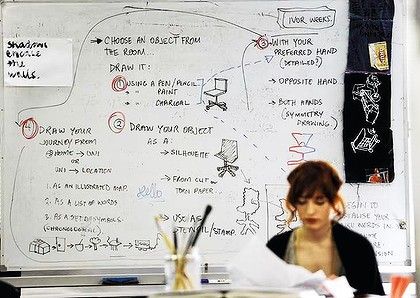 Shadows
engulf
the
walls.
IVOR WEEKS.
→ CHOOSE AN OBJECT FROM
THE ROOM...
DRAW IT:
① USING A PEN/PENCIL
" PAINT
" CHARCOAL
② DRAW YOUR OBJECT
AS A:
→ SILHOUETTE
→ FROM CUT OR
TORN PAPER.
→ USE AS
STENCIL/STAMP.
③ → WITH YOUR
PREFERRED HAND
(DETAILED?)
→ OPPOSITE HAND
→ BOTH HANDS
(SYMMETRY
DRAWING.)
④ DRAW YOUR
JOURNEY FROM
→ HOME → UNI
OR
UNI → LOCATION
1. AS AN ILLUSTRATED MAP.
2. AS A LIST OF WORDS
3. AS A SET OF SYMBOLS.
(CHRONOLOGICAL)
hello